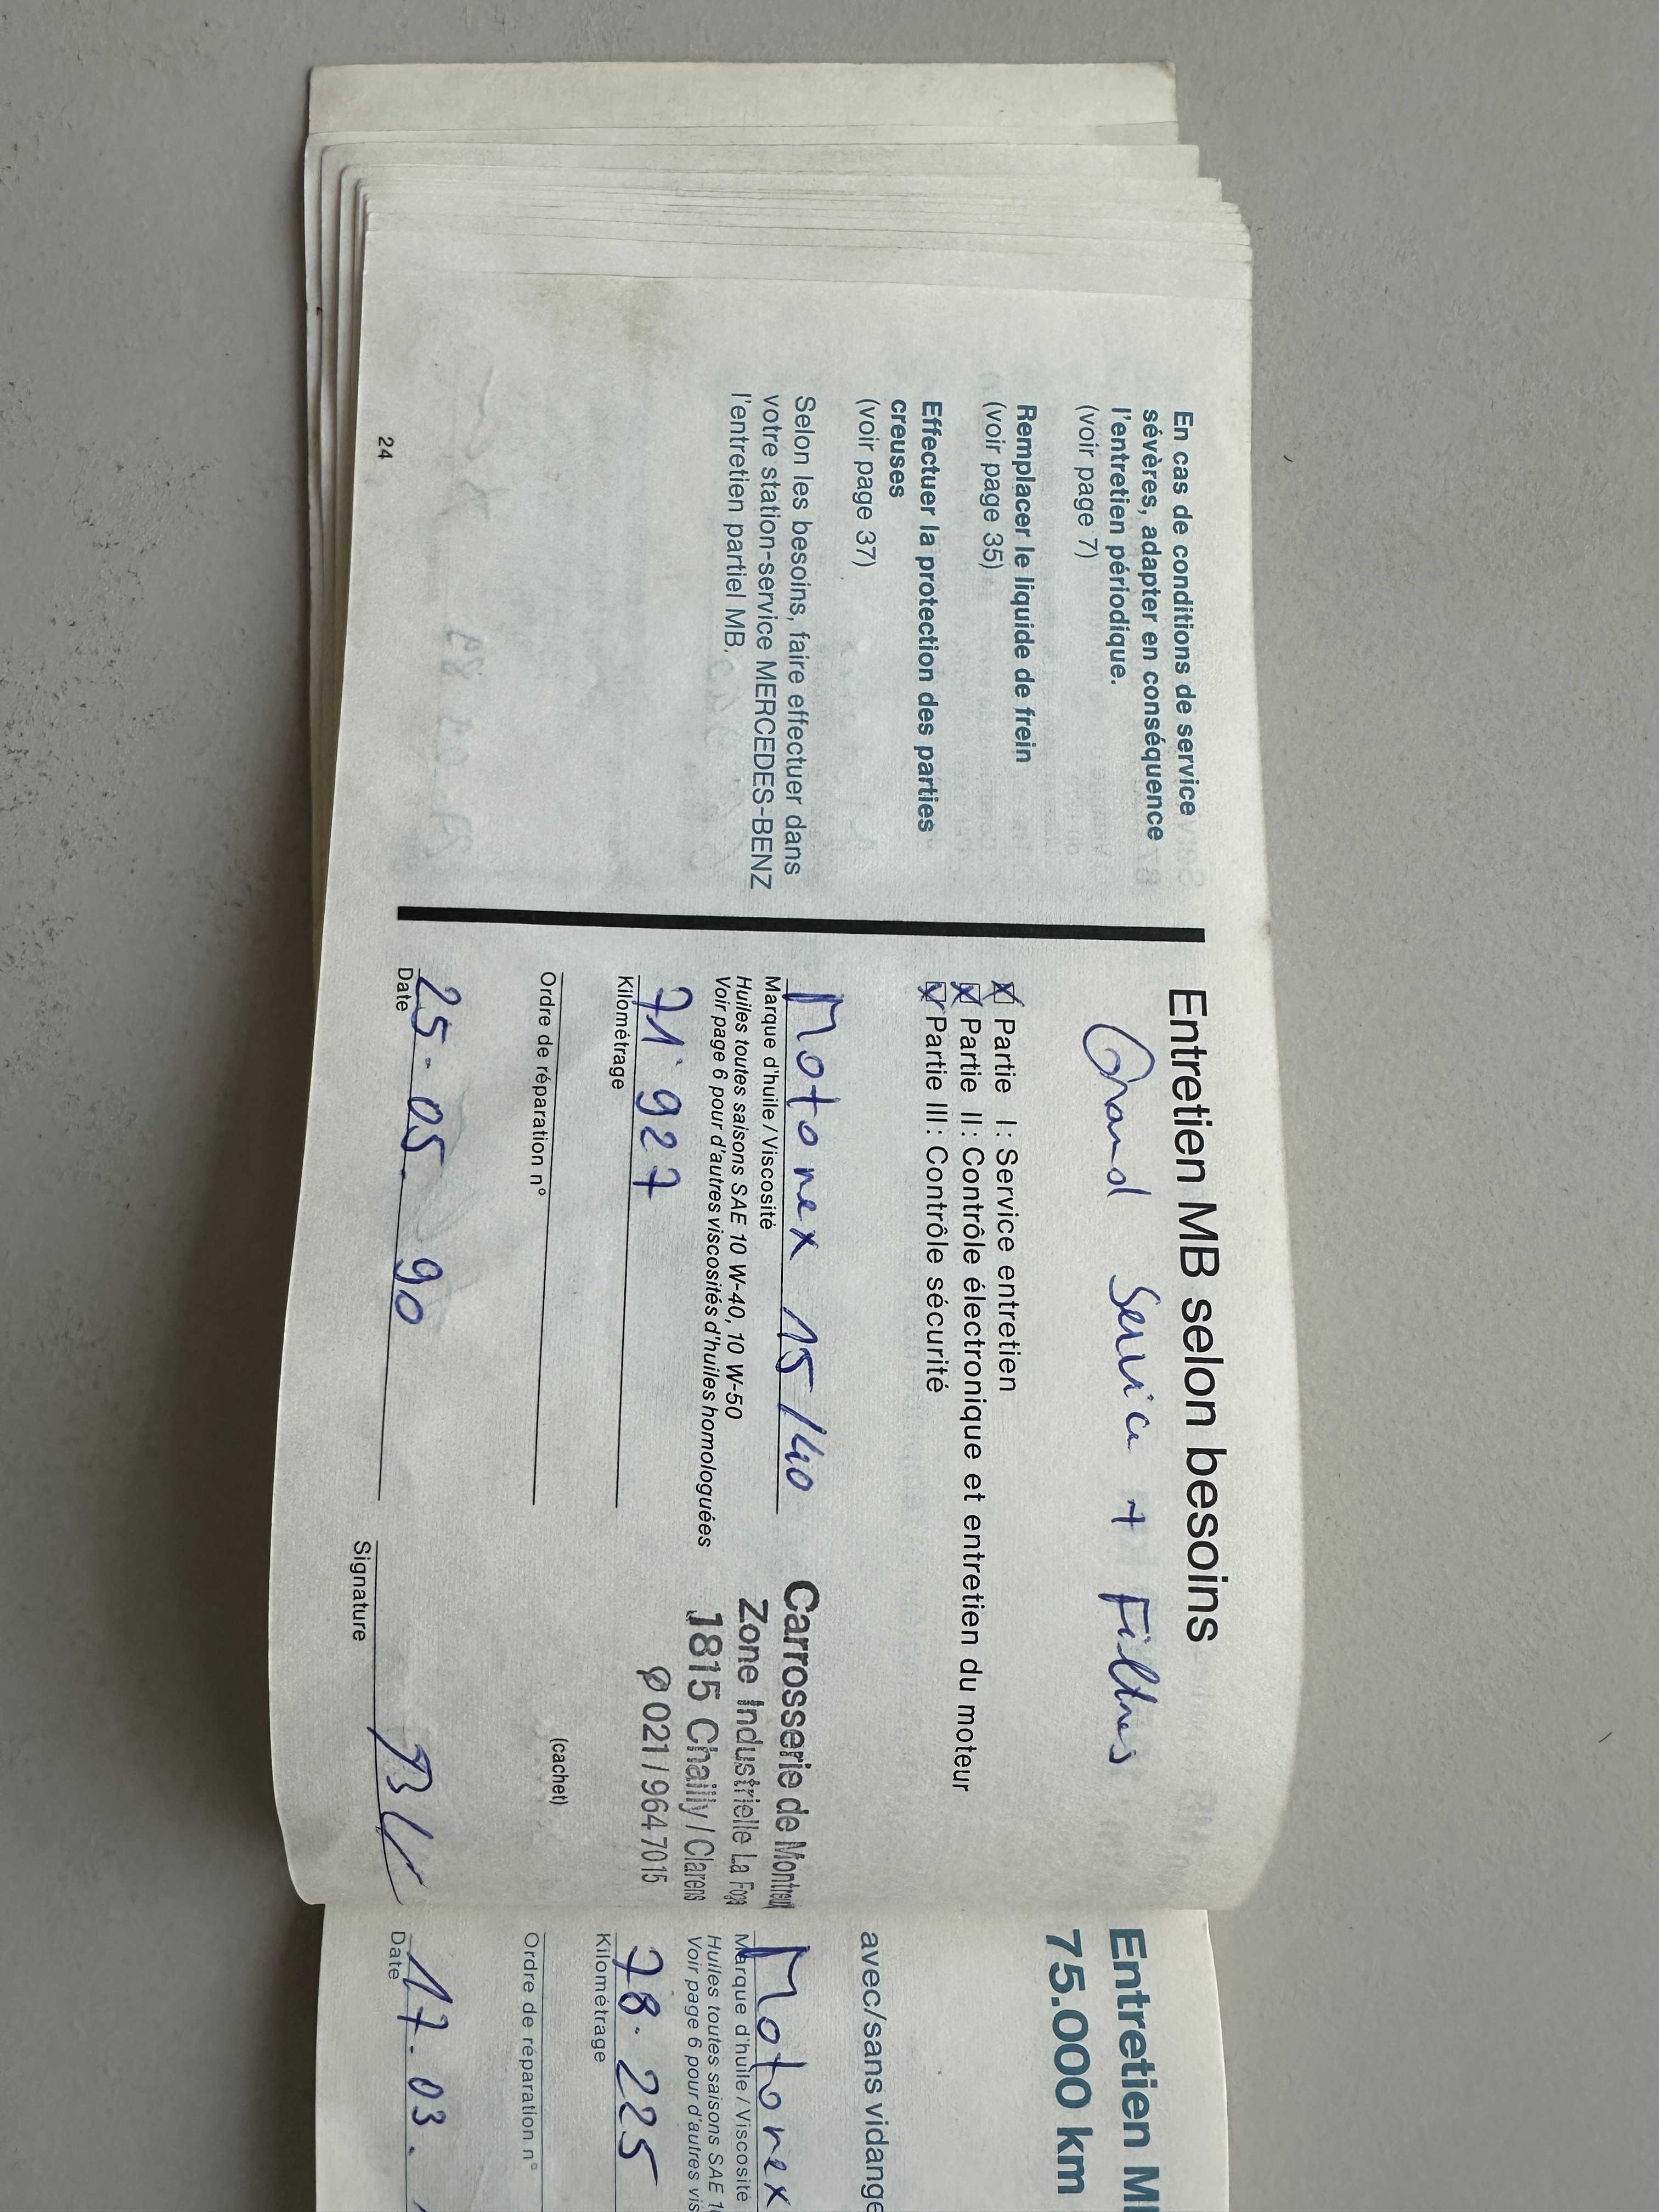 En cas de conditions de service
sévères, adapter en conséquence
l'entretien périodique.
(voir page 7)
Remplacer le liquide de frein
(voir page 35)
Effectuer la protection des parties
creuses
(voir page 37)
Selon les besoins, faire effectuer dans
votre station-service MERCEDES-BENZ
l'entretien partiel MB.
24
Entretien MB selon besoins
Grand Service + Filtres
x Partie I: Service entretien
x Partie II: Contrôle électronique et entretien du moteur
x Partie III: Contrôle sécurité
Motorex 15/40
Marque d'huile/Viscosité
Huiles toutes saisons SAE 10 W-40, 10 W-50
Voir page 6 pour d'autres viscosités d'huiles homologuées
71'927
Kilométrage
Ordre de réparation n°
25.05.90
Date
Carrosserie de Montreux
Zone Industrielle La
1815 Chailly / Clarens
021 / 964 70 15
(cachet)
Signature
Entretien
75.000 km
avec/sans vidange
Motorex
Marque d'huile/Viscosité
Huiles toutes saisons SAE
Voir page 6 pour d'autres
78.225
Kilométrage
Ordre de réparation n°
17.03.
Date